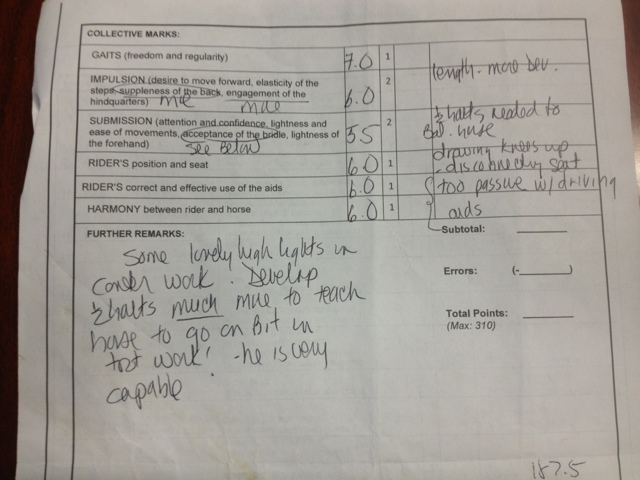 COLLECTIVE MARKS:
GAITS (freedom and regularity) 7.0 1
length - more dev.
IMPULSION (desire to move forward, elasticity of the
steps, suppleness of the back, engagement of the
hindquarters) more more 6.0 2
½ halts needed to
Bal. horse
SUBMISSION (attention and confidence, lightness and
ease of movements, acceptance of the bridle, lightness of
the forehand) see Below 5.5 2
drawing knees up
RIDER'S position and seat 6.0 1
- disconnects seat
RIDER'S correct and effective use of the aids 6.0 1
too passive w/ driving
HARMONY between rider and horse 6.0 1
aids
FURTHER REMARKS:
Some lovely high lights in
canter work. Develop
½ halts much more to teach
horse to go on Bit in
trot work! - he is very
capable
Subtotal:
Errors: (- )
Total Points:
(Max: 310)
187.5